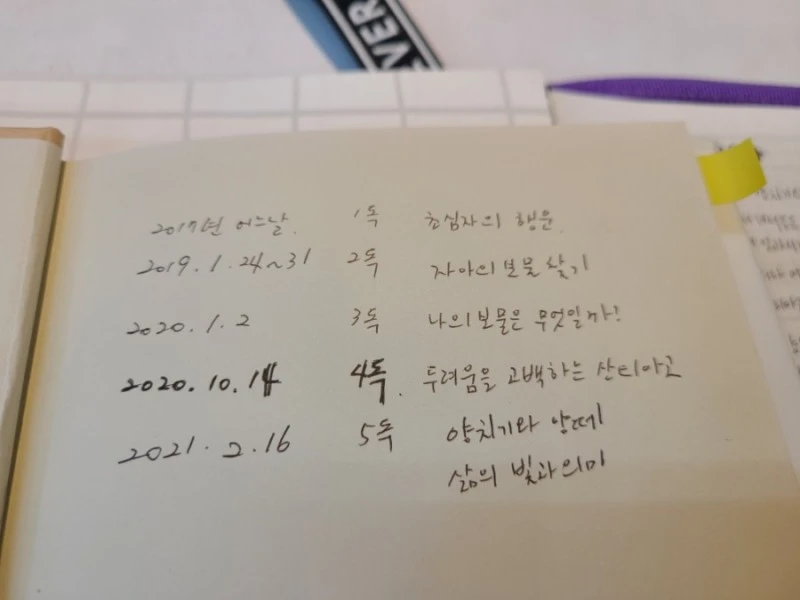 EVER
2017년 어느날. 1독 초심자의 행운
2019.1.24~31 2독 자아의 보물 찾기
2020.1.2 3독 나의 보물은 무엇일까?
2020.10.14 4독. 두려움을 고백하는 산티아고
2021.2.16 5독 양치기와 양떼
삶의 빛과 의미